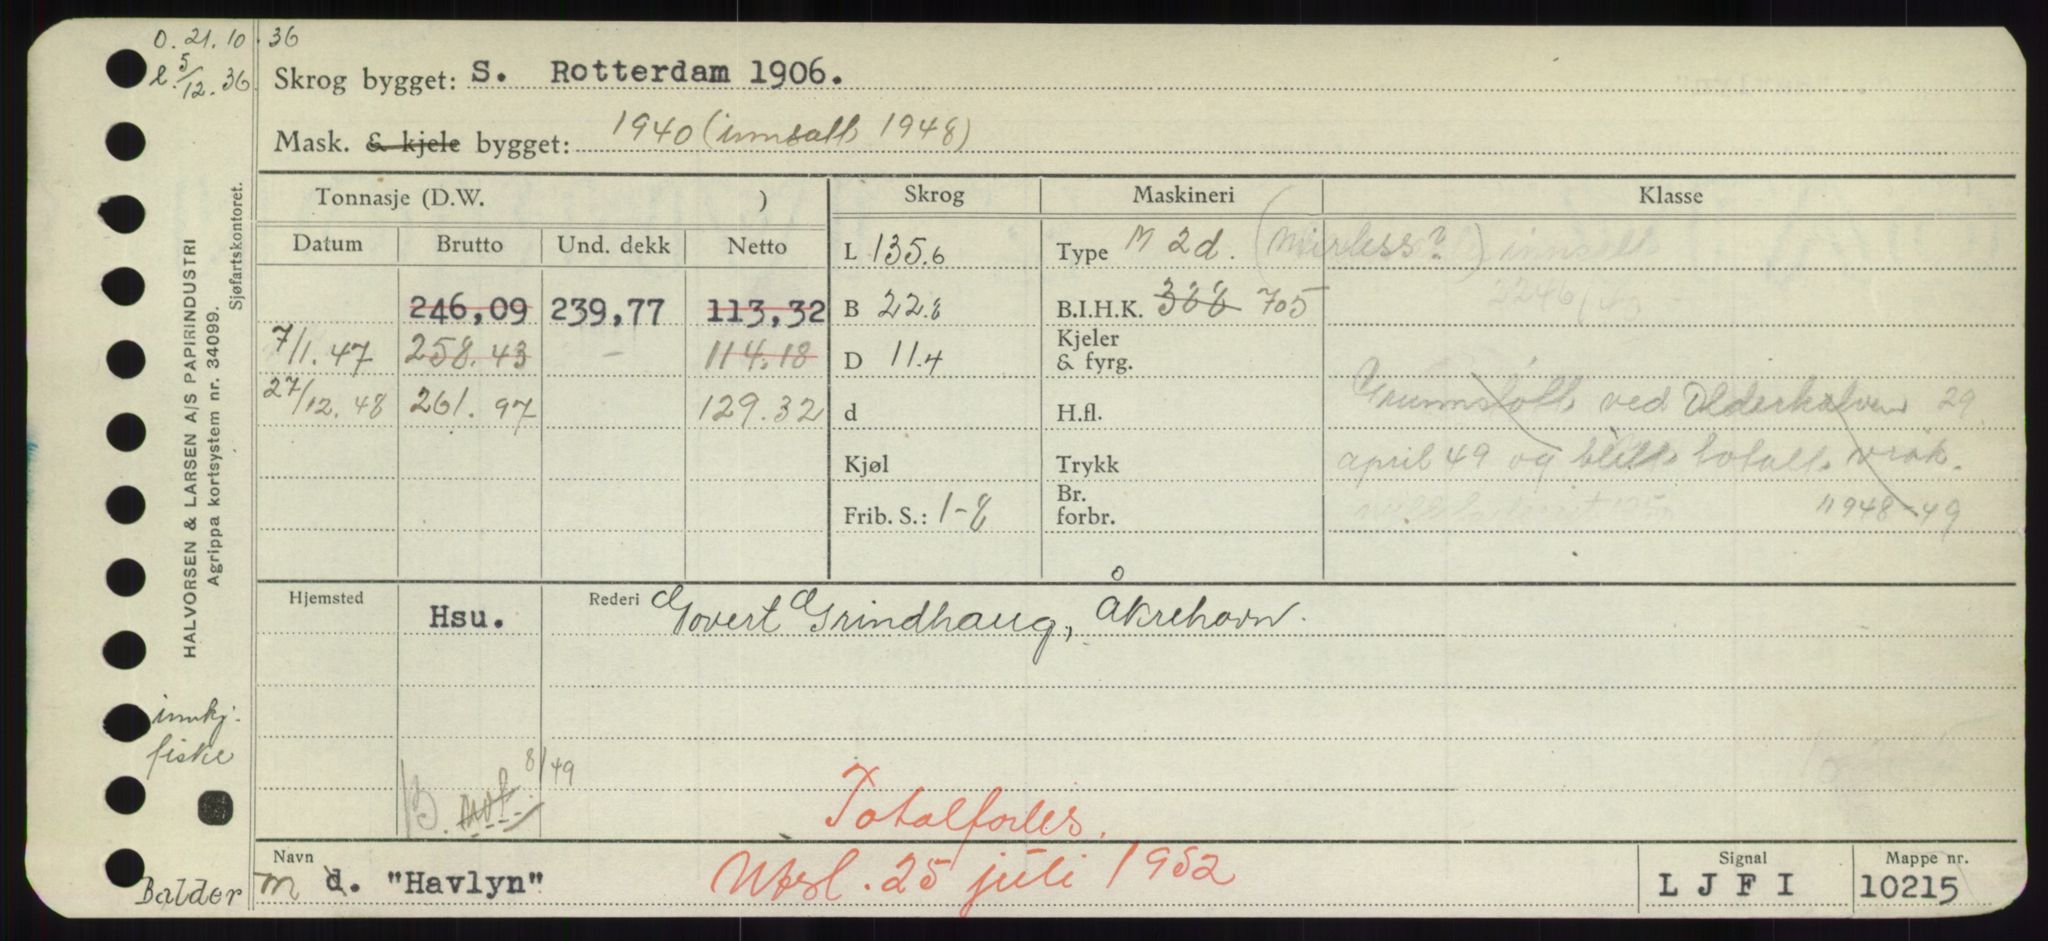 O. 21. 10. 36
l. 5/12. 36.
Skrog bygget: S. Rotterdam 1906.
Mask. & kjele bygget: 1940 (innsatt 1948)
Tonnasje (D.W. ) Skrog Maskineri Klasse
Datum Brutto Und. dekk Netto L 135.6 Type M 2d. (Mirless?) innsatt
246,09 239,77 113,32 B 22.8 B.I.H.K. 388 705
7/1. 47 258.43 - 114.18 D 11.4 Kjeler & fyrg.
27/12. 48 261.97 129.32 d H.fl. Grunnstøtt ved Olderkalven 29
Kjøl Trykk april 49 og blitt totalt vrak.
Frib. S.: 1-8 Br. forbr. 1948-49
Hjemsted Hsu. Rederi Govert Grindhaug, Åkrehavn.
innkj. fiske
B. 8/49
Totalforlis.
Navn m d. "Havlyn" Utsl. 25 juli 1952 Signal LJFI Mappe nr. 10215
Balder
HALVORSEN & LARSEN A/S PAPIRINDUSTRI
Agrippa kortsystem nr. 34099.
Sjøfartskontoret.